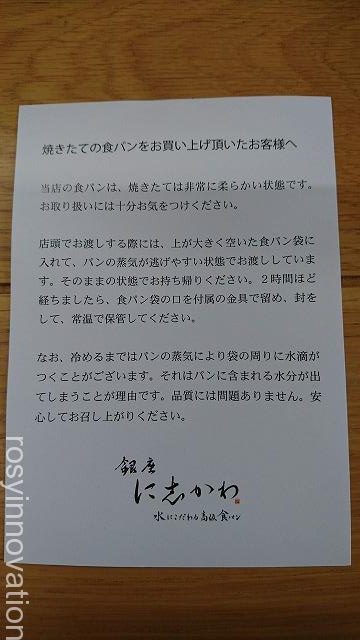 焼きたての食パンをお買い上げ頂いたお客様へ
当店の食パンは、焼きたては非常に柔らかい状態です。
お取り扱いには十分お気をつけください。
店頭でお渡しする際には、上が大きく空いた食パン袋に
入れて、パンの蒸気が逃げやすい状態でお渡ししていま
す。そのままの状態でお持ち帰りください。２時間ほど
経ちましたら、食パン袋の口を付属の金具で留め、封を
して、常温で保管してください。
なお、冷めるまではパンの蒸気により袋の周りに水滴が
つくことがございます。それはパンに含まれる水分が出
てしまうことが理由です。品質には問題ありません。安
心してお召し上がりください。
銀座
に志かわ
水にこだわる高級食パン
rosyinnovation